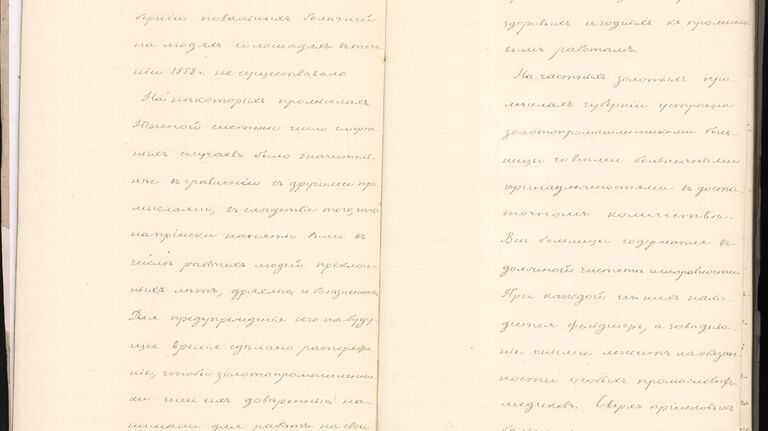 берніи повальныхъ болѣзней
на людяхъ и лошадяхъ въ тече
ніи 1858 г. не существовало
На нѣкоторыхъ промыслахъ
Южной системы число смерт
ныхъ случаевъ было значитель
нѣе въ сравненіи съ другими про
мыслами, въ слѣдствіе того, что
на пріиски наняты были въ
числѣ рабочихъ людей преклон
ныхъ лѣтъ, дряхлые и болѣзненные.
Для предупрежденія сего на буду
щее время сдѣлано распоряже
ніе, чтобы золотопромышленни
ки или ихъ довѣренные на
нимали для работъ на свои
здоровыхъ и годныхъ къ промысло
вымъ работамъ.
На частныхъ золотыхъ про
мыслахъ губерніи устроены
золотопромышленниками боль
ницы со всѣми больничными
принадлежностями въ доста
точномъ количествѣ.
Всѣ больницы содержатся въ
должной чистотѣ и исправности
При каждой изъ нихъ нахо
дится фельдшеръ, а завѣдыва
ніе оными лежитъ на обязан
ности особыхъ промысловыхъ
медиковъ. Сверхъ пріисковыхъ